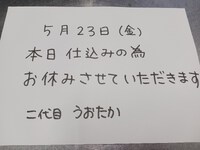 5月23日(金)
本日 仕込みの為
お休みさせていただきます
二代目 うおたか